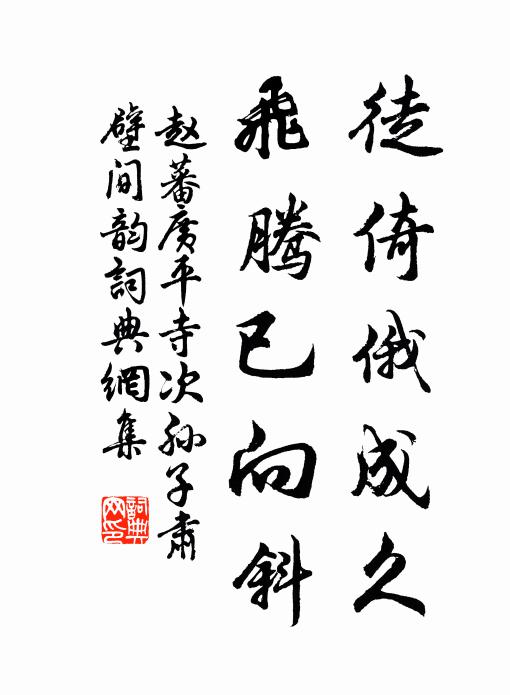 徒倚俄成久
飛騰已向斜
赵蕃廣平寺次孙子肅
壁间韵詞典網集